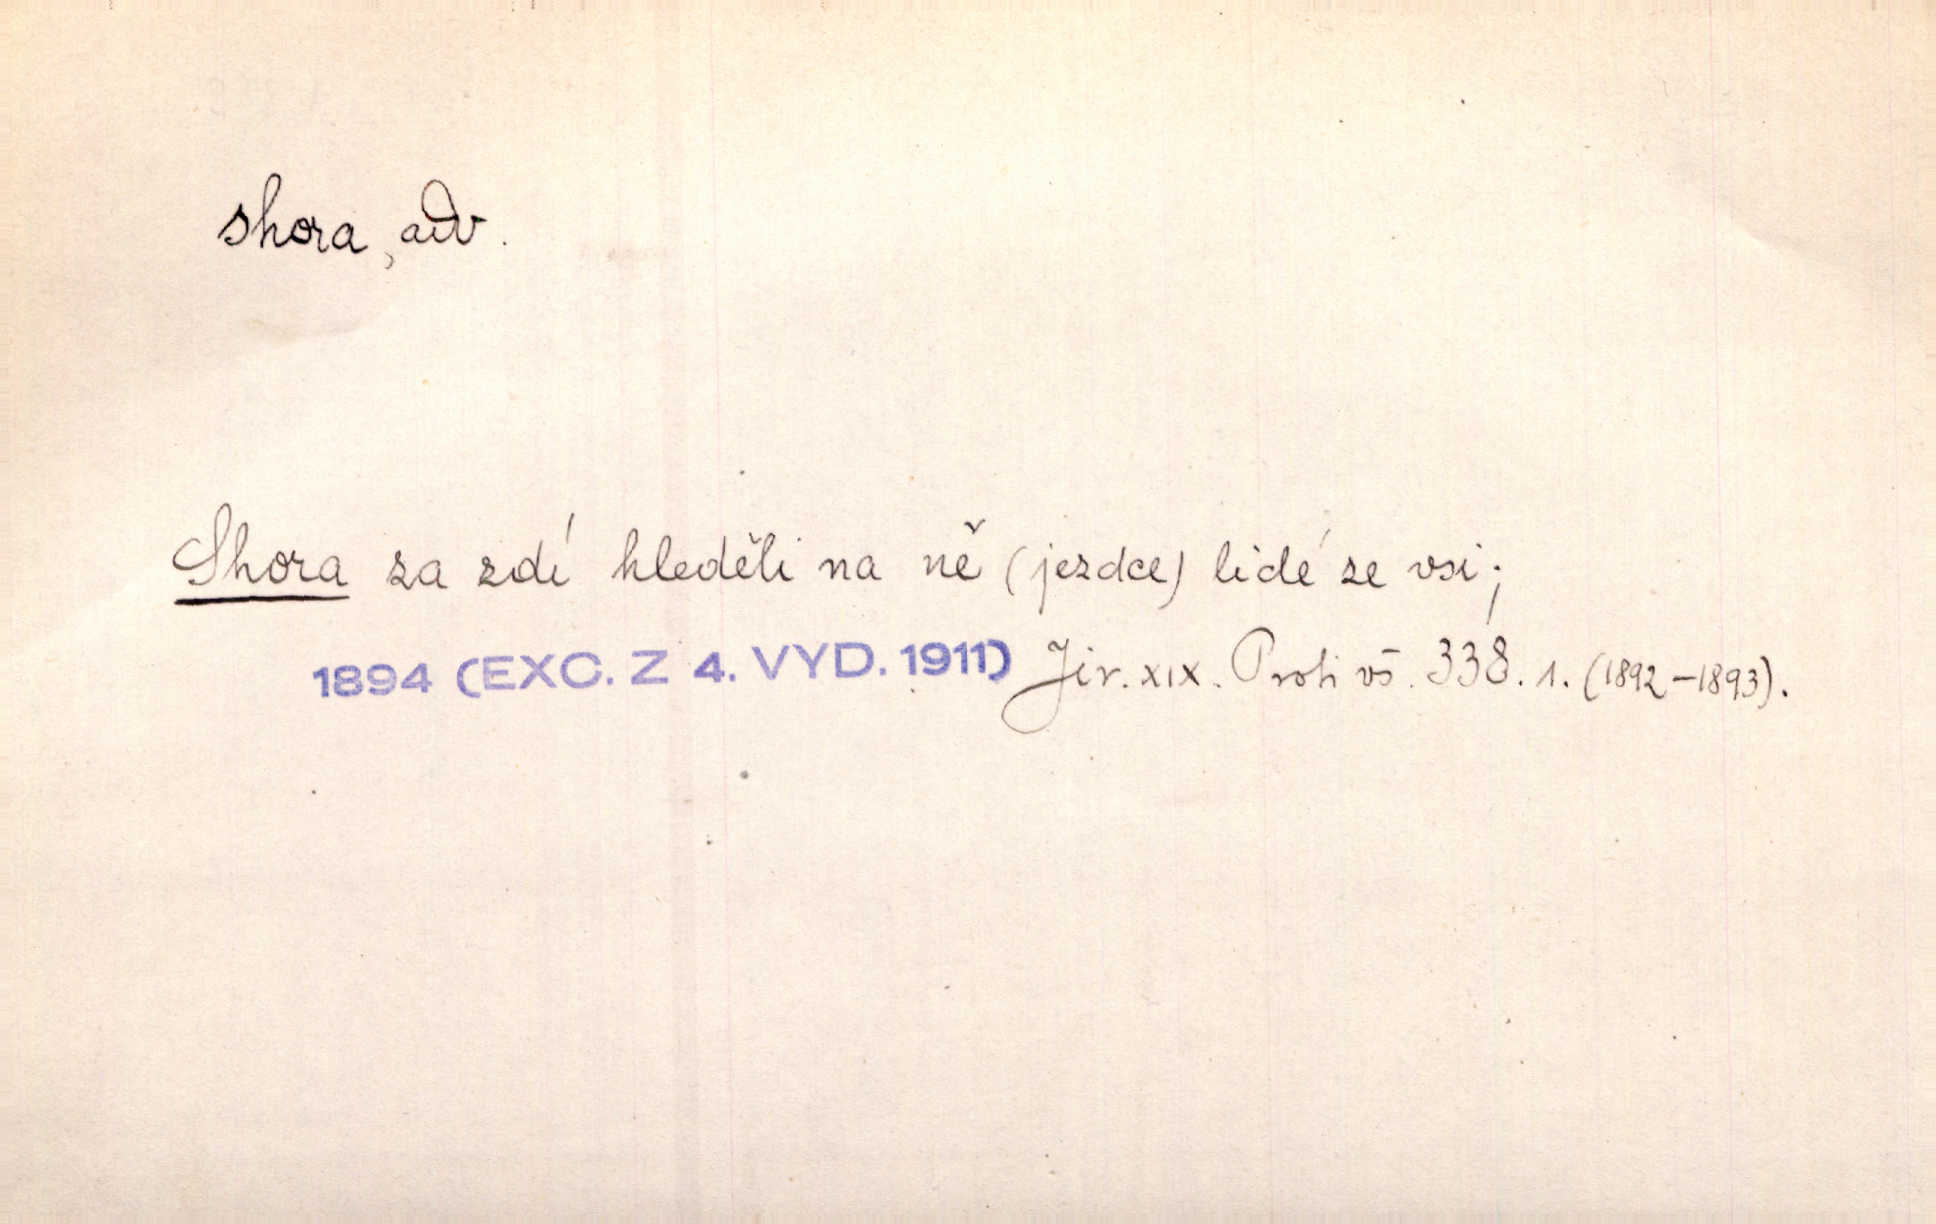 shora, adv.
Shora za zdí hleděli na ně (jezdce) lidé ze vsi;
1894 (EXC. Z 4. VYD. 1911) Jir. XIX. Proti vš. 338. 1. (1892-1893).